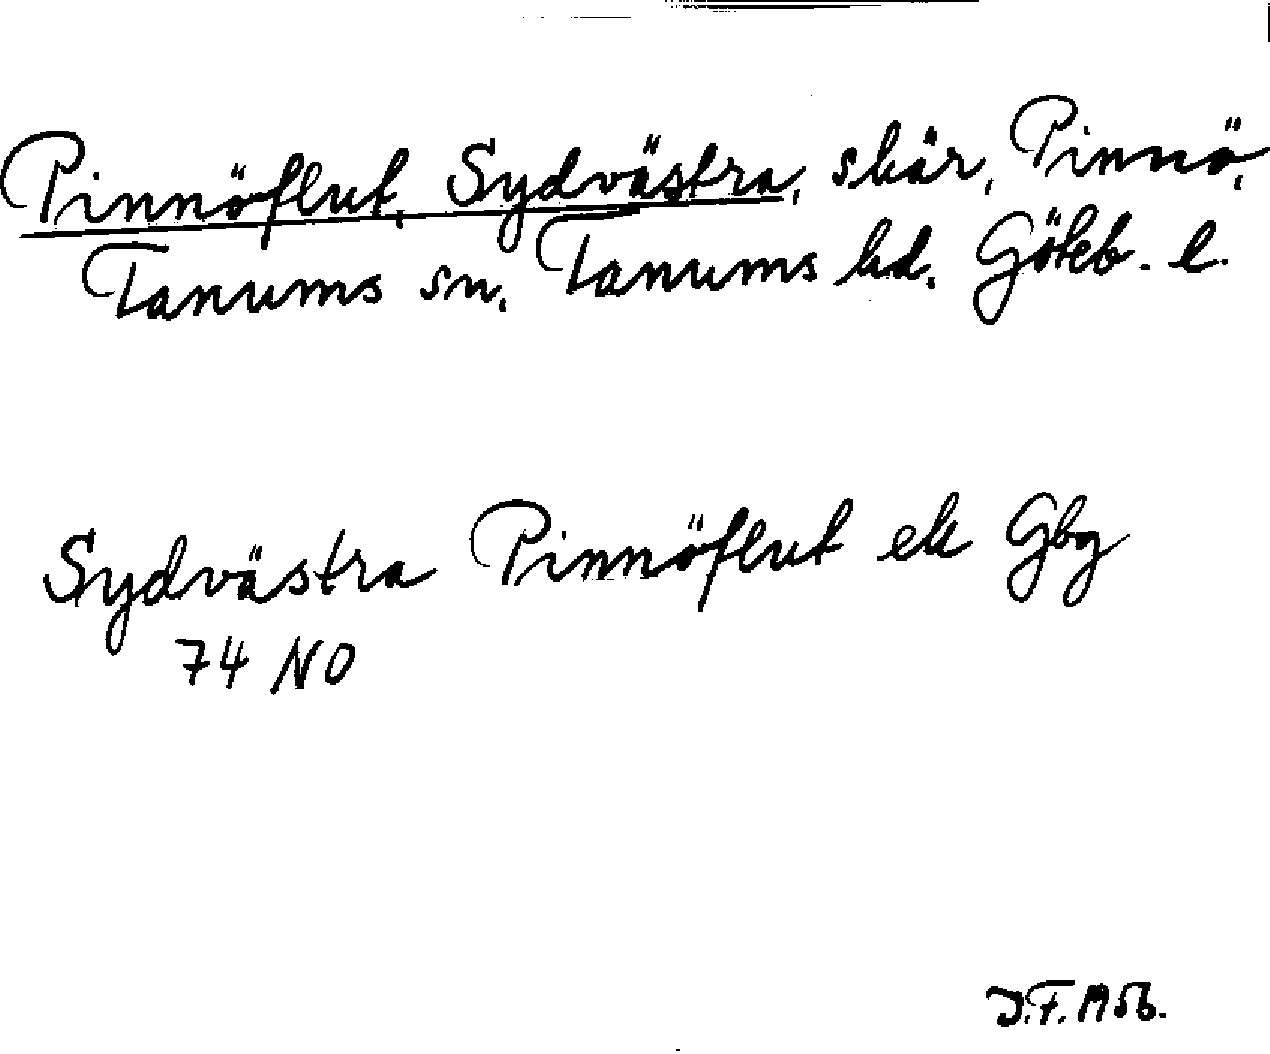 Pinnöflut, Sydvästra, skär, Pinnö,
Tanums sn, Tanums hd. Göteb. l.
Sydvästra Pinnöflut ek Gbg
74 NO
J.F. 1956.